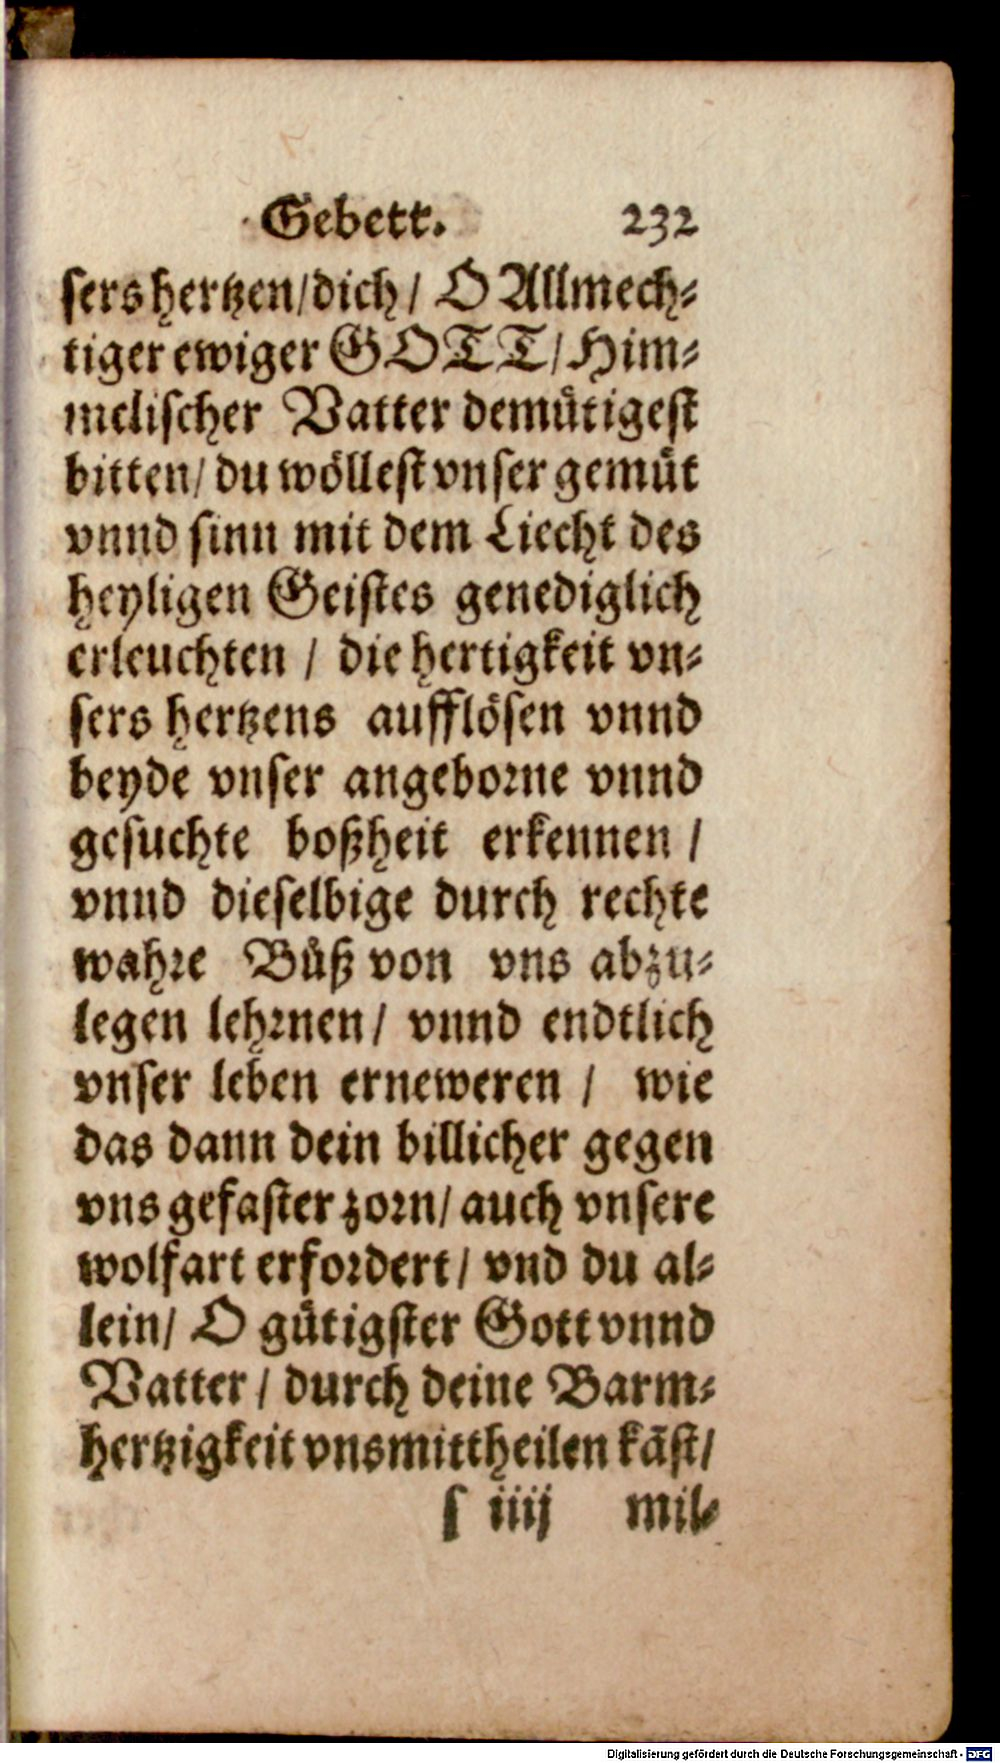 Gebett. 232
sers hertzen/dich/ O Allmech⸗
tiger ewiger GOTT/Him⸗
melischer Vatter demütigest
bitten/ du wöllest vnser gemüt
vnnd sinn mit dem Liecht des
heyligen Geistes genediglich
erleuchten / die hertigkeit vn⸗
sers hertzens aufflösen vnnd
beyde vnser angeborne vnnd
gesuchte boßheit erkennen /
vnnd dieselbige durch rechte
wahre Büß von vns abzu⸗
legen lehrnen/ vnnd endtlich
vnser leben erneweren / wie
das dann dein billicher gegen
vns gefaster zorn/ auch vnsere
wolfart erfordert/ vnd du al⸗
lein/ O gütigster Gott vnnd
Vatter / durch deine Barm⸗
hertzigkeit vns mittheilen kāst/
s iiij mil⸗
Digitalisierung gefördert durch die Deutsche Forschungsgemeinschaft - DFG